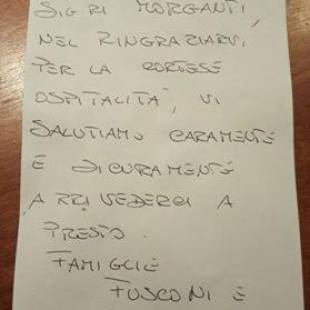 SIG RI MORGANTI,
NEL RINGRAZIARVI
PER LA CORTESE
OSPITALITA', VI
SALUTIAMO CARAMENTE
E SICURAMENTE
ARRIVEDERCI A
PRESTO.
FAMIGLIE
FUSCONI E